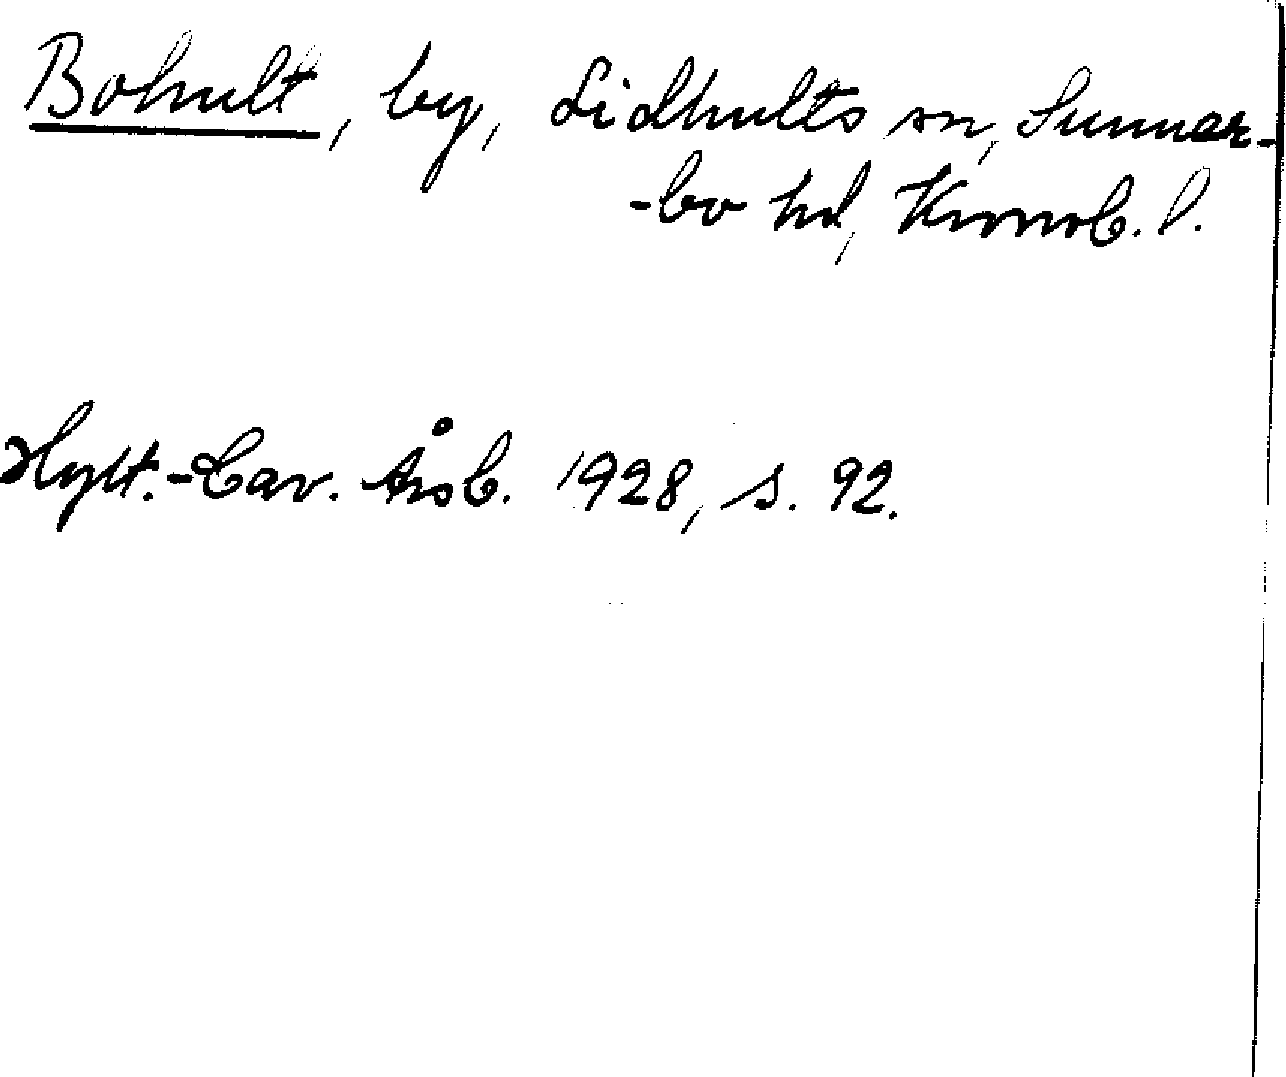 Bohult, by, Lidhults sn, Sunnar-
-bo hd, Kronob. l.
Hylt.-Cav. Årsb. 1928, s. 92.